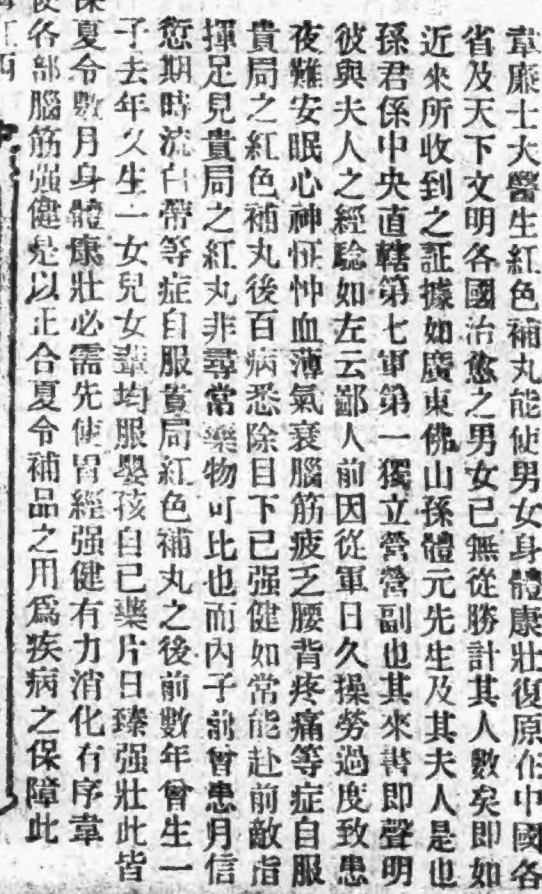 韋廉士大醫生紅色補丸能使男女身體康壯復原在中國各
省及天下文明各國治愈之男女已無從勝計其人數矣即如
近來所收到之証據如廣東佛山孫體元先生及其夫人是也
孫君係中央直轄第七軍第一獨立營營副也其來書即聲明
彼與夫人之經驗如左云鄙人前因從軍日久操勞過度致患
夜難安眠心神怔忡血薄氣衰腦筋疲乏腰背疼痛等症自服
貴局之紅色補丸後百病悉除目下已强健如常能赴前敵指
揮足見貴局之紅丸非尋常藥物可比也而內子前曾患月信
愆期時流白帶等症自服貴局紅色補丸之後前數年曾生一
子去年又生一女兒女輩均服嬰孩自已藥片日臻强壯此皆
夏令數月身體康壯必需先使胃經强健有力消化有序韋
各部腦筋强健是以正合夏令補品之用爲疾病之保障此